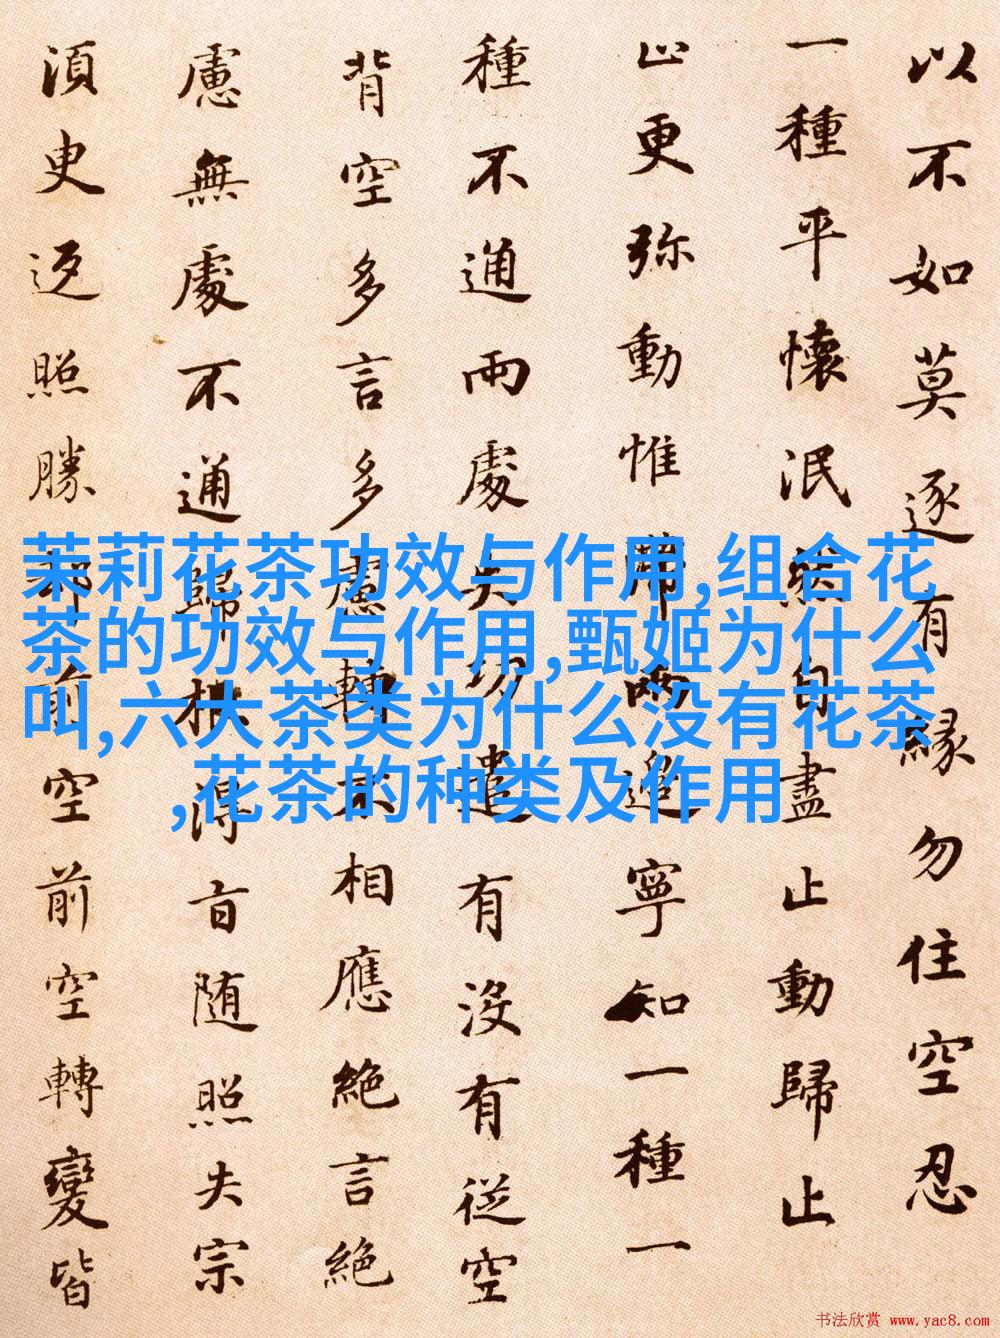 以不如莫逐有緣勿住空忍
一種平懷泯然自盡止動歸止
止更弥動惟滯兩邊寧知一種一
種不通兩處失功遣有没有從空
背空多言多慮轉不相應絶言絶
慮無處不通歸根得旨随照失宗
須臾返照勝却前空前空轉變皆
茉莉花茶功效与作用,组合花
茶的功效与作用,甄姬为什么
叫,六大茶类为什么没有花茶
,花茶的种类及作用
书法欣赏 www.yac8.com